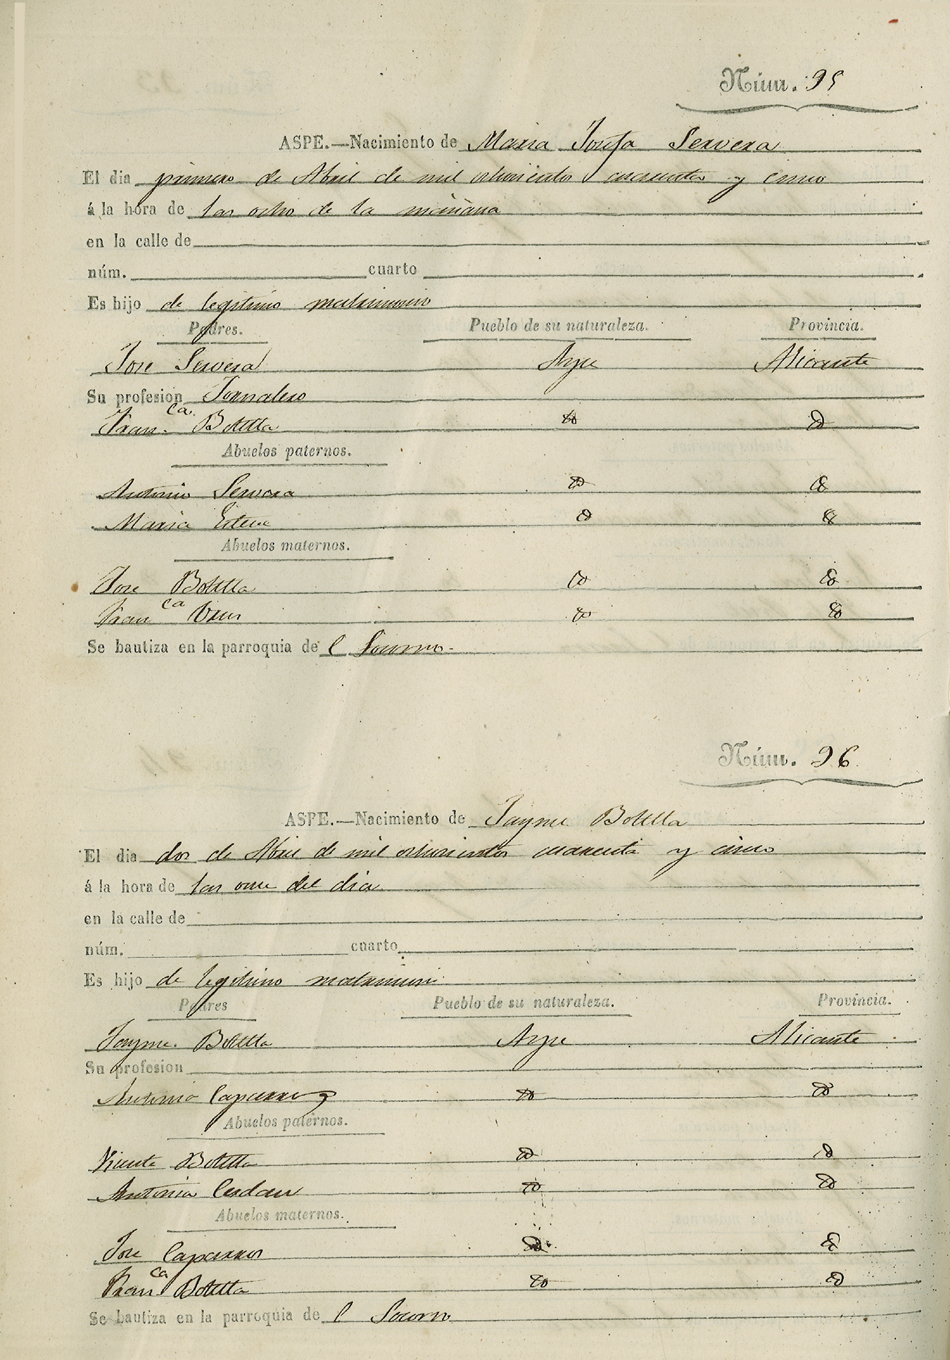 Núm. 95
ASPE.—Nacimiento de Maria Josefa Servera
El dia primero de Abril de mil ochocientos cuarenta y cinco
á la hora de las ocho de la mañana
en la calle de
núm. cuarto
Es hijo de legitimo matrimonio
Padres. Pueblo de su naturaleza. Provincia.
Jose Servera Aspe Alicante
Su profesion Jornalero
Fran.ca Botella
Abuelos paternos.
Antonio Servera
Maria
Abuelos maternos.
Jose Botella
Fran ca
Se bautiza en la parroquia de l Socorro.
Núm. 96
ASPE.—Nacimiento de Jayme Botella
El dia dos de Abril de mil ochocientos cuarenta y cinco
á la hora de las once del dia
en la calle de
núm. cuarto
Es hijo de legitimo matrimoni
Padres Pueblo de su naturaleza. Provincia.
Jayme Botella Aspe Alicante
Su profesion
Antonia Caparros
Abuelos paternos.
Vicente Botella
Antonia
Abuelos maternos.
Jose Caparros
Fran ca Botella
Se bautiza en la parroquia de l Socorro